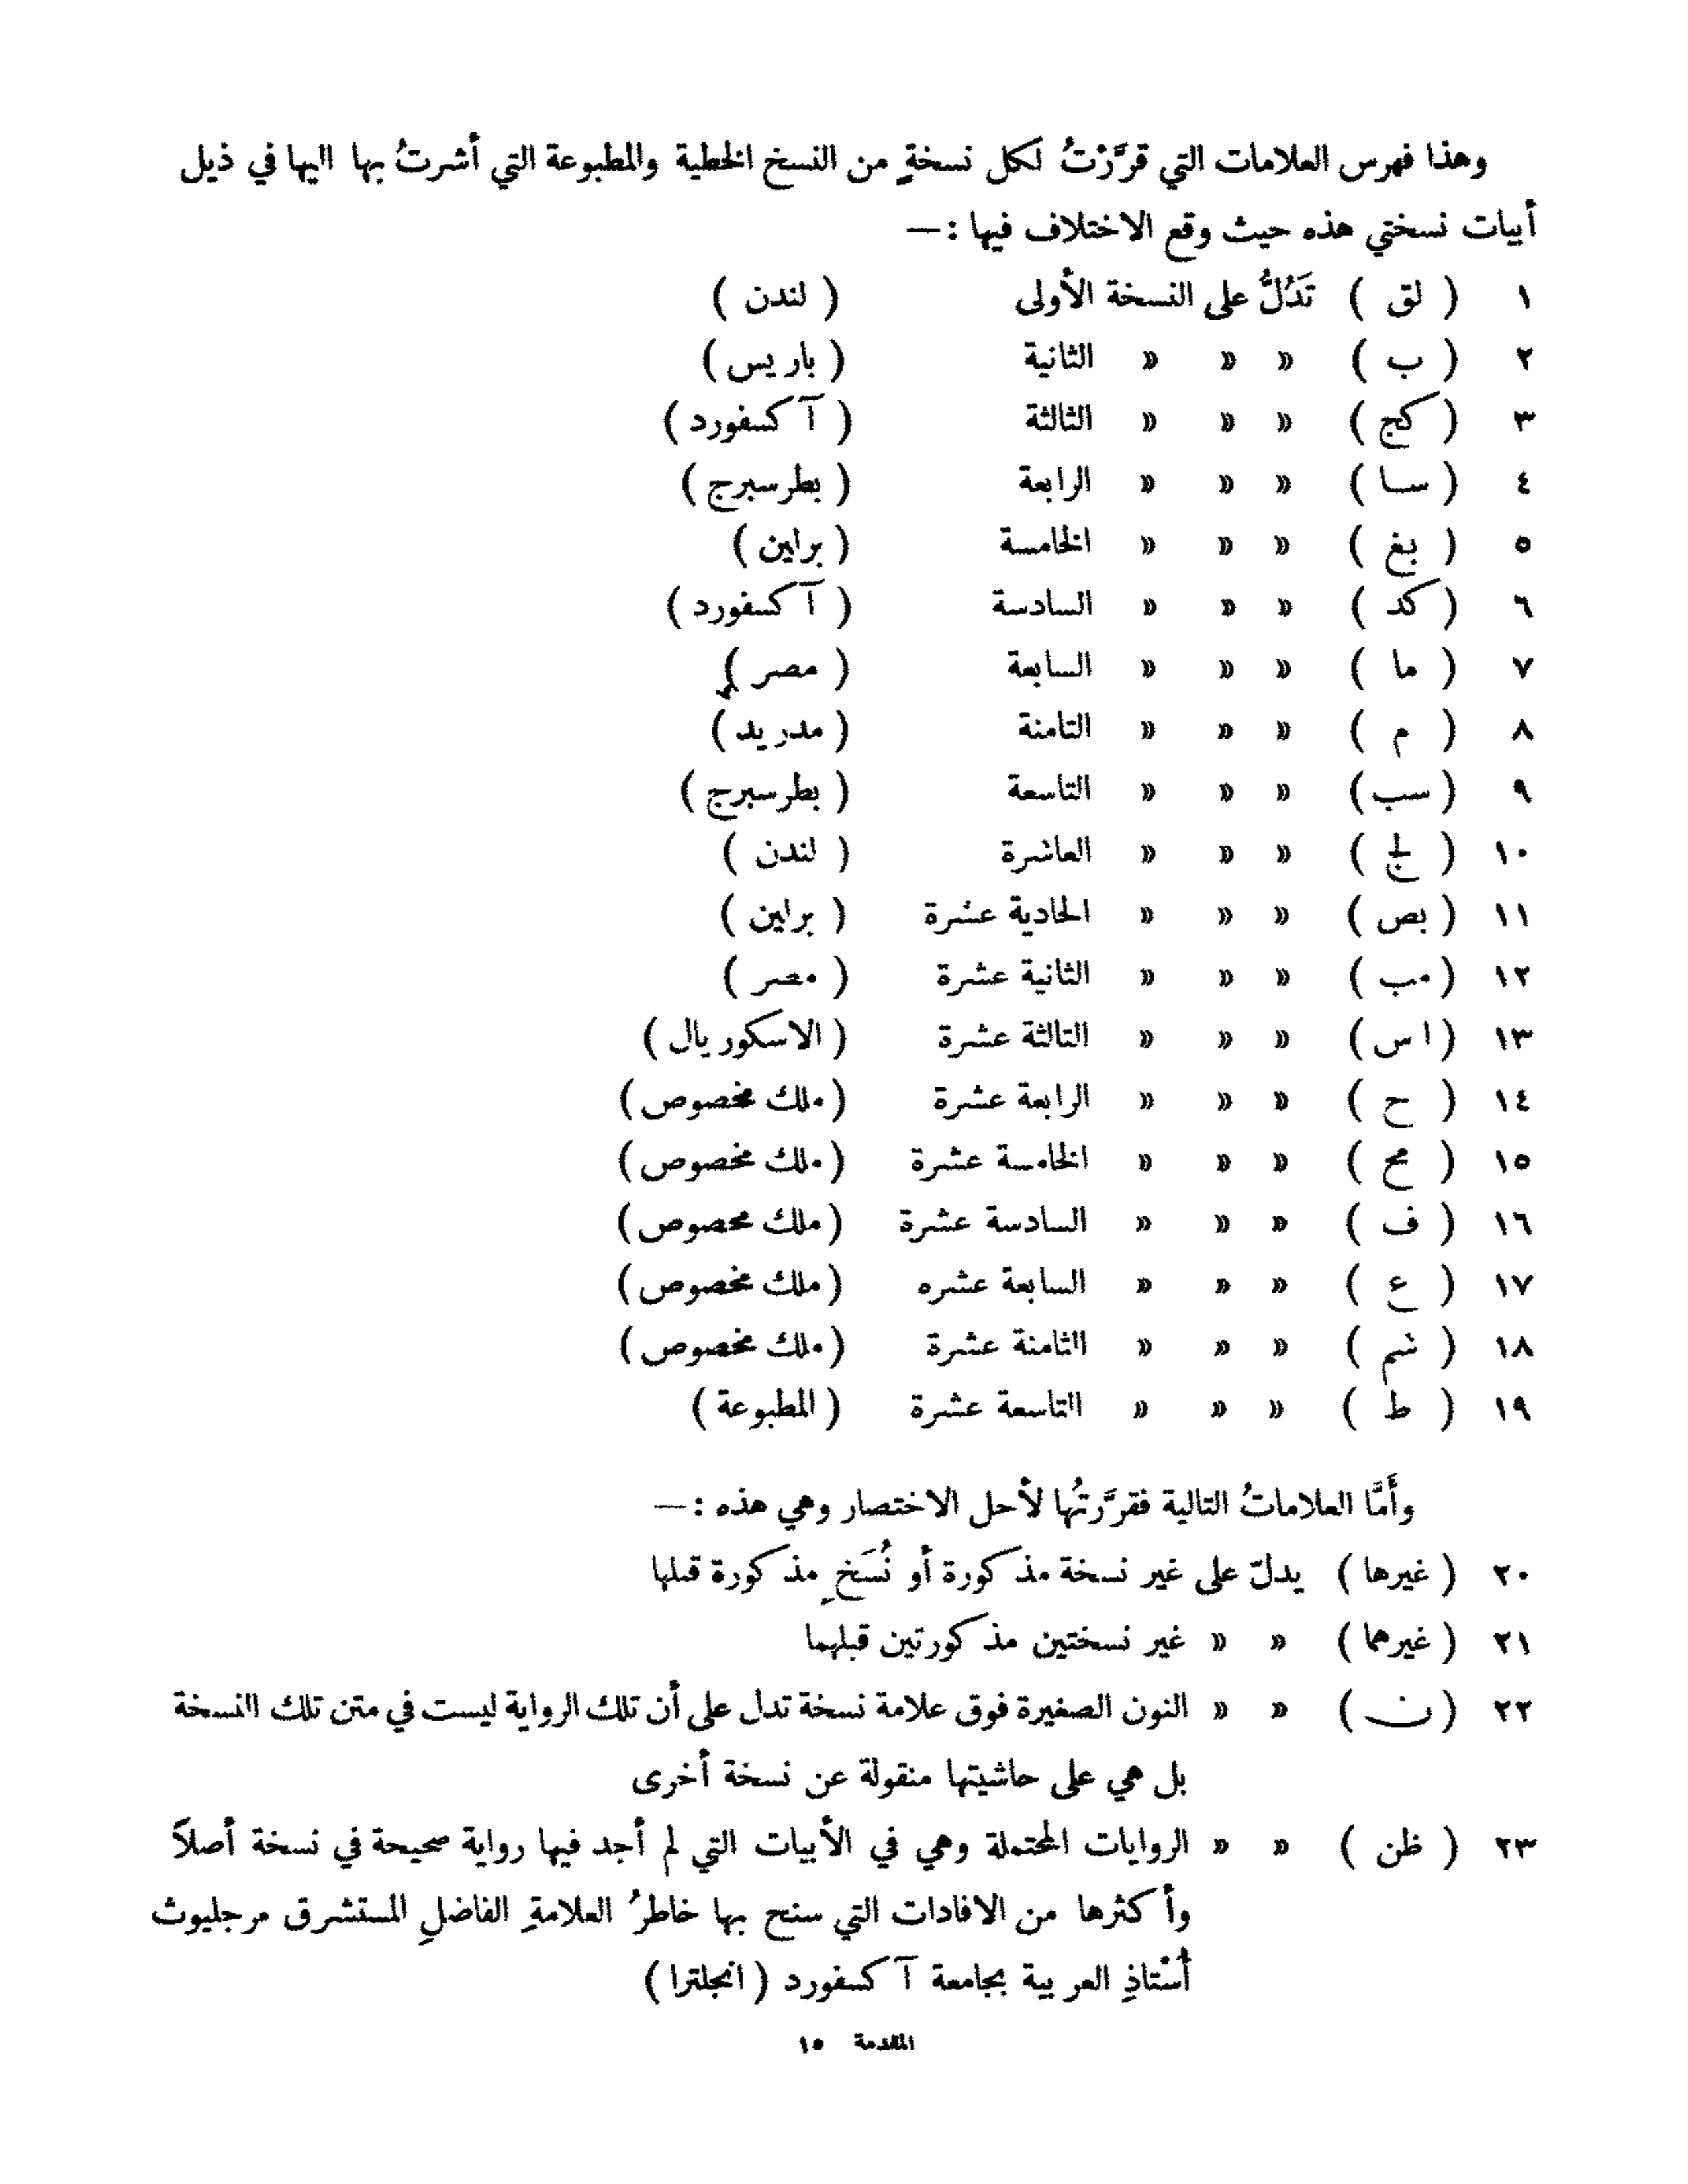 وهذا فهرس العلامات التي قرَّرْتُ لكل نسخةٍ من النسخ الخطية والمطبوعة التي أشرتُ بها اليها في ذيل
أبيات نسختي هذه حيث وقع الاختلاف فيها :—
١ ( لق ) تَدُلُّ على النسخة الأولى ( لندن )
٢ ( ب ) » » » الثانية ( باريس )
٣ ( كج ) » » » الثالثة ( آكسفورد )
٤ ( سا ) » » » الرابعة ( بطرسبرج )
٥ ( بغ ) » » » الخامسة ( برلين )
٦ ( كد ) » » » السادسة ( آكسفورد )
٧ ( ما ) » » » السابعة ( مصر )
٨ ( م ) » » » الثامنة ( مدريد )
٩ ( سب ) » » » التاسعة ( بطرسبرج )
١٠ ( لج ) » » » العاشرة ( لندن )
١١ ( بص ) » » » الحادية عشرة ( برلين )
١٢ ( مب ) » » » الثانية عشرة ( مصر )
١٣ ( اس ) » » » الثالثة عشرة ( الاسكوريال )
١٤ ( ح ) » » » الرابعة عشرة ( ملك مخصوص )
١٥ ( مح ) » » » الخامسة عشرة ( ملك مخصوص )
١٦ ( ف ) » » » السادسة عشرة ( ملك مخصوص )
١٧ ( ع ) » » » السابعة عشره ( ملك مخصوص )
١٨ ( شم ) » » » الثامنة عشرة ( ملك مخصوص )
١٩ ( ط ) » » » التاسعة عشرة ( المطبوعة )
وأَمَّا العلاماتُ التالية فقرَّرتُها لأجل الاختصار وهي هذه :—
٢٠ ( غيرها ) يدلّ على غير نسخة مذكورة أو نُسَخٍ مذكورة قبلها
٢١ ( غيرهما ) » » غير نسختين مذكورتين قبلهما
٢٢ ( ن ) » » النون الصغيرة فوق علامة نسخة تدل على أن تلك الرواية ليست في متن تلك النسخة
بل هي على حاشيتها منقولة عن نسخة أخرى
٢٣ ( ظن ) » » الروايات المحتملة وهي في الأبيات التي لم أجد فيها رواية صحيحة في نسخة أصلاً
وأكثرها من الافادات التي سنح بها خاطرُ العلامةِ الفاضلِ المستشرق مرجليوث
أُسْتاذِ العربية بجامعة آكسفورد ( انجلترا )
المقدمة ١٥